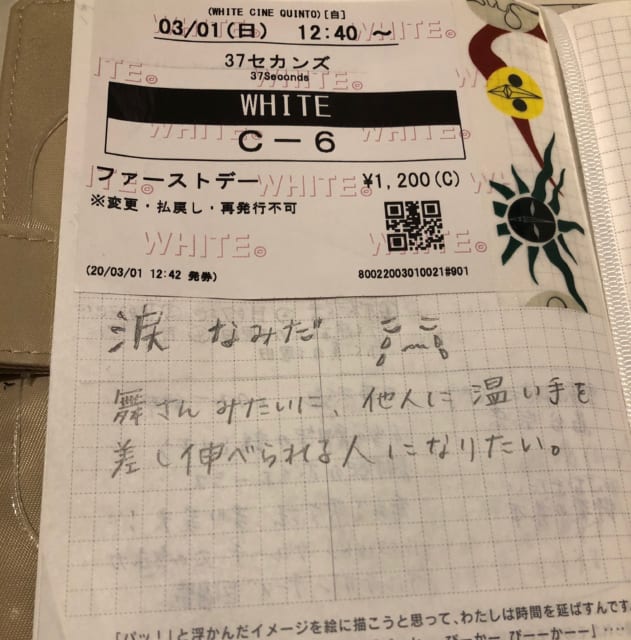 (WHITE CINE QUINTO)[白]
03/01(日) 12:40 ～
37セカンズ
37Seconds
WHITE
C－6
ファーストデー ¥1,200(C)
※変更・払戻し・再発行不可
WHITE©
(20/03/01 12:42 発券) 80022003010021#901
涙 なみだ
舞さんみたいに、他人に温い手を
差し伸べられる人になりたい。
「パッ！」と浮かんだイメージを絵に描こうと思って、わたしは時間を延ばすんです